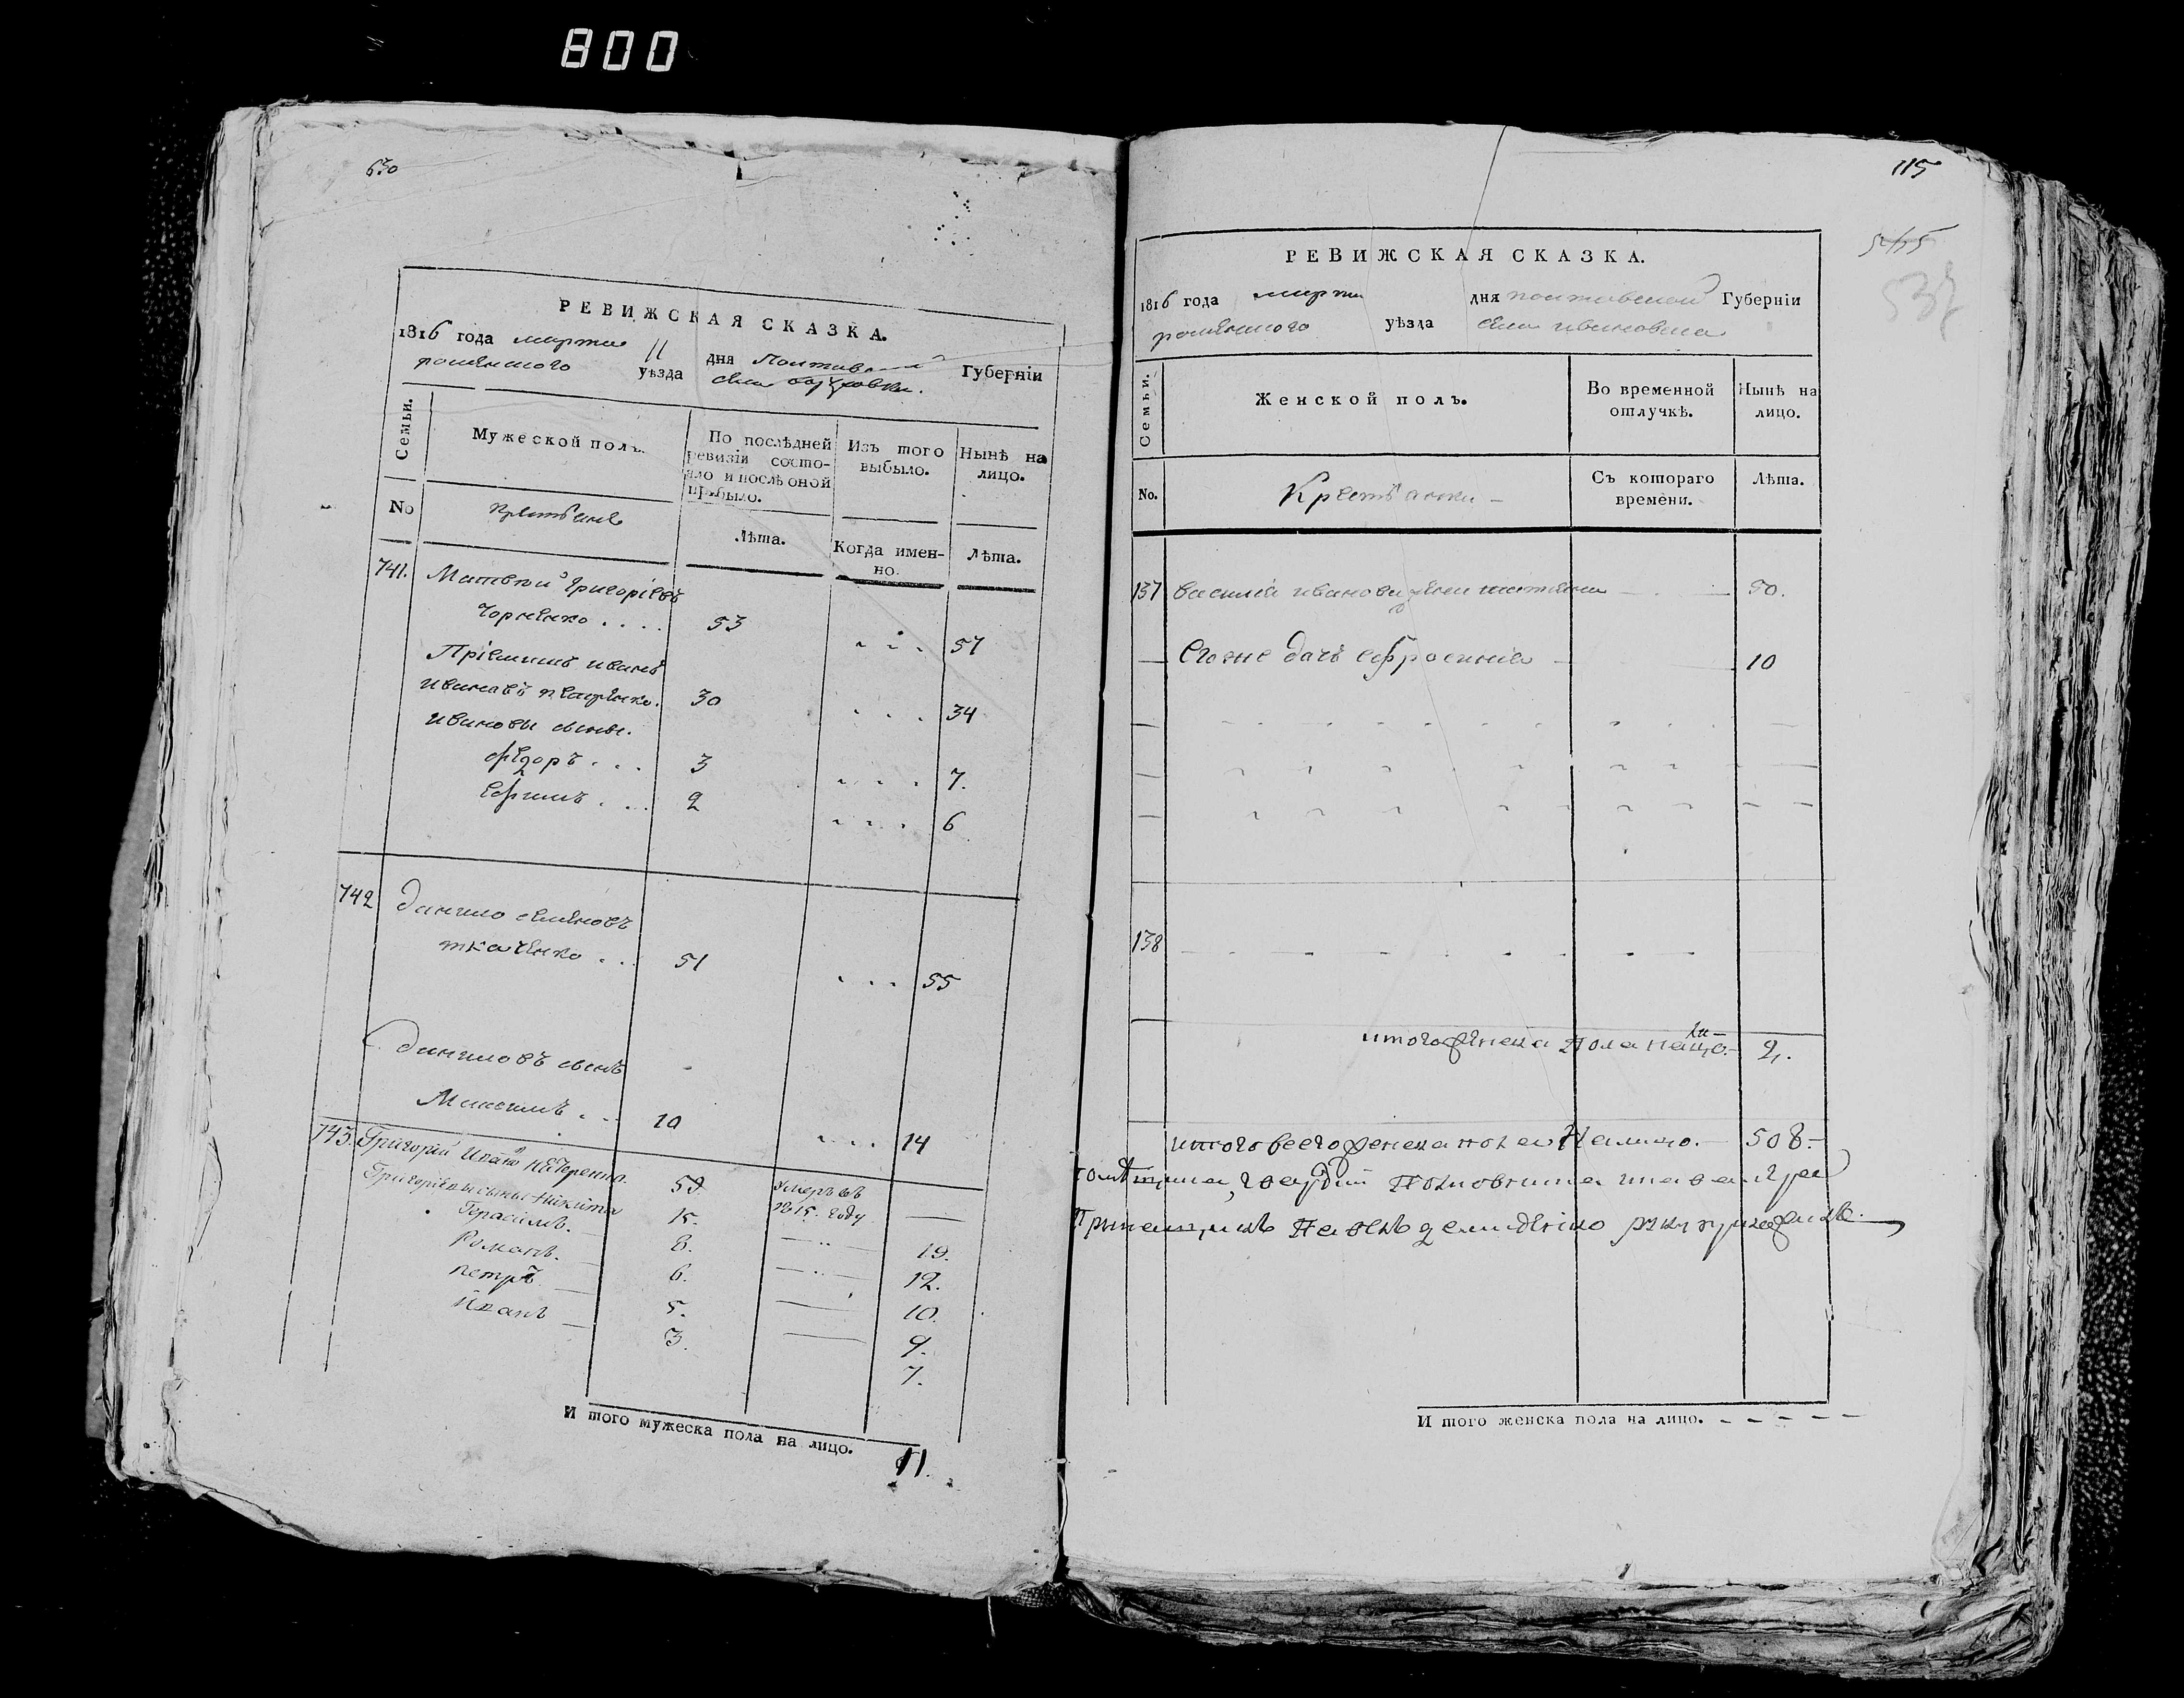 800
630
РЕВИЖСКАЯ СКАЗКА.
1816 года марта 11 дня Полтавской Губерніи
роменского уѣзда села
Семьи.
Мужеской полъ.
По послѣдней ревизіи состояло и послѣ оной прибыло.
Изъ того выбыло.
Нынѣ на лицо.
No
крестьяне
Лѣта.
Когда именно.
Лѣта.
741. Матвѣй Григоріевъ
Чорненко . . . . 53 . . . 57
Пріемишъ иванъ
ивановъ 30 . . . 34
ивановы сыны.
Ѳедоръ . . . 3 . . . . 7.
Ефимъ . . . 2 . . . . 6
742 данило семеновъ
ткаченко . . 51 . . . 55
даниловъ сынъ
Максимъ . . . 10 . . . . 14
743. Григорий Иванов Нечеренко. 59. умеръ въ 1815. году —
Григоріевы сыны Никита 15. — 19.
Герасимъ. 8. — 12.
Романъ. 6. — 10.
петръ 5. — 9.
Иванъ 3. — 7.
И того мужеска пола на лицо. 11.
115
РЕВИЖСКАЯ СКАЗКА.
1816 года марта дня полтавской Губерніи
роменского уѣзда села ивановка
Семьи.
Женской полъ.
Во временной отлучкѣ.
Нынѣ на лицо.
No.
Крестьянки
Съ котораго времени.
Лѣта.
137 василія иванова жена татьяна 50.
Его же дочь ефросинія 10
138
итого женска пола на лицо. 2.
итого всего женска пола На лицо. 508.